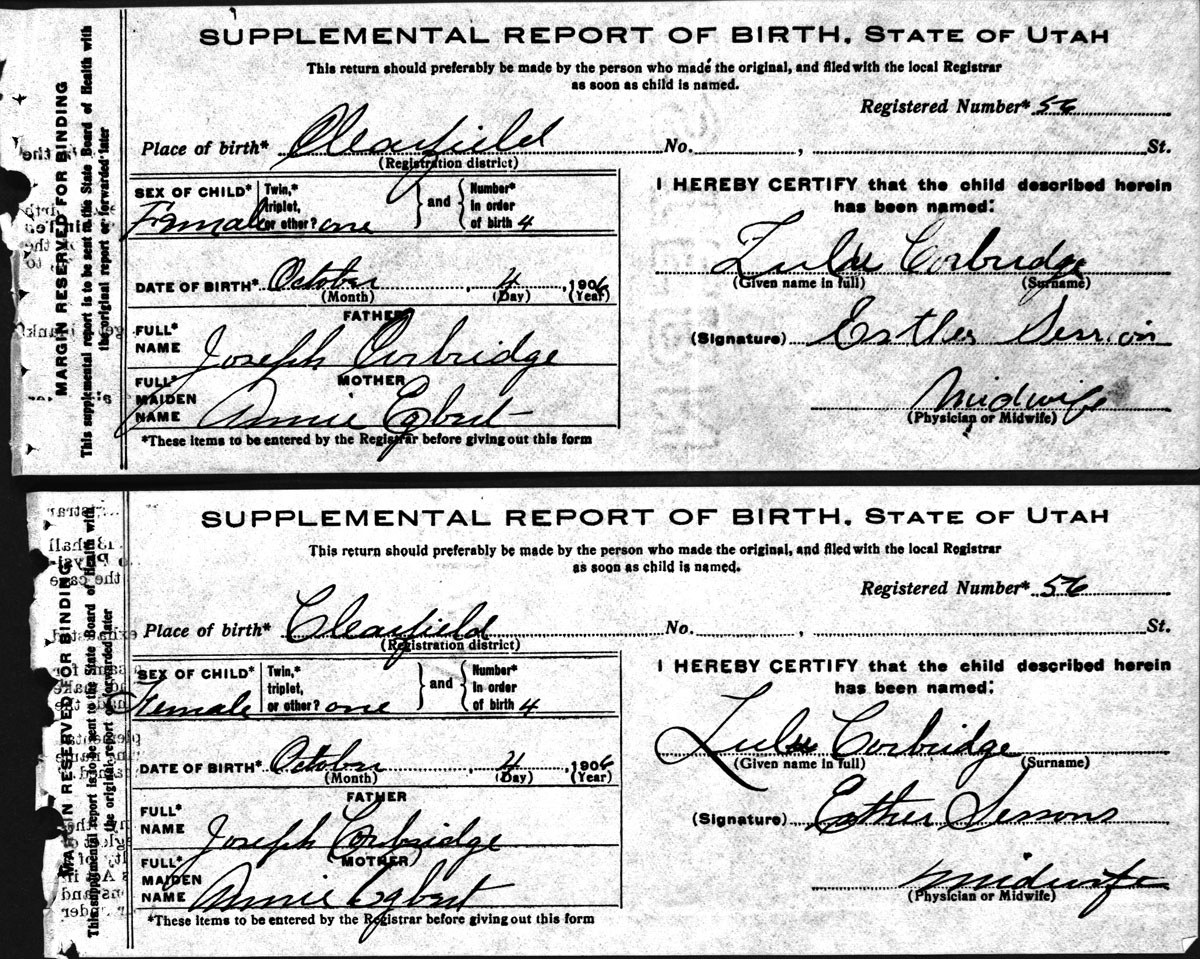 MARGIN RESERVED FOR BINDING
This supplemental report is to be sent to the State Board of Health with
the original report or forwarded later
SUPPLEMENTAL REPORT OF BIRTH, STATE OF UTAH
This return should preferably be made by the person who made the original, and filed with the local Registrar
as soon as child is named.
Registered Number* 56
Place of birth* Clearfield No. , St.
(Registration district)
SEX OF CHILD* Female
Twin,* triplet, or other? one
and
Number* in order of birth 4
DATE OF BIRTH* October , 4 , 1906
(Month) (Day) (Year)
FATHER
FULL* NAME Joseph Corbridge
MOTHER
FULL* MAIDEN NAME Annie Egbert
*These items to be entered by the Registrar before giving out this form
I HEREBY CERTIFY that the child described herein
has been named:
Lulu Corbridge
(Given name in full) (Surname)
(Signature) Esther
Midwife
(Physician or Midwife)
MARGIN RESERVED FOR BINDING
This supplemental report is to be sent to the State Board of Health with
the original report or forwarded later
SUPPLEMENTAL REPORT OF BIRTH, STATE OF UTAH
This return should preferably be made by the person who made the original, and filed with the local Registrar
as soon as child is named.
Registered Number* 56
Place of birth* Clearfield No. , St.
(Registration district)
SEX OF CHILD* Female
Twin,* triplet, or other? one
and
Number* in order of birth 4
DATE OF BIRTH* October , 4 , 1906
(Month) (Day) (Year)
FATHER
FULL* NAME Joseph Corbridge
(MOTHER)
FULL* MAIDEN NAME Annie Egbert
*These items to be entered by the Registrar before giving out this form
I HEREBY CERTIFY that the child described herein
has been named:
Lulu Corbridge
(Given name in full) (Surname)
(Signature) Esther Sessons
midwife
(Physician or Midwife)